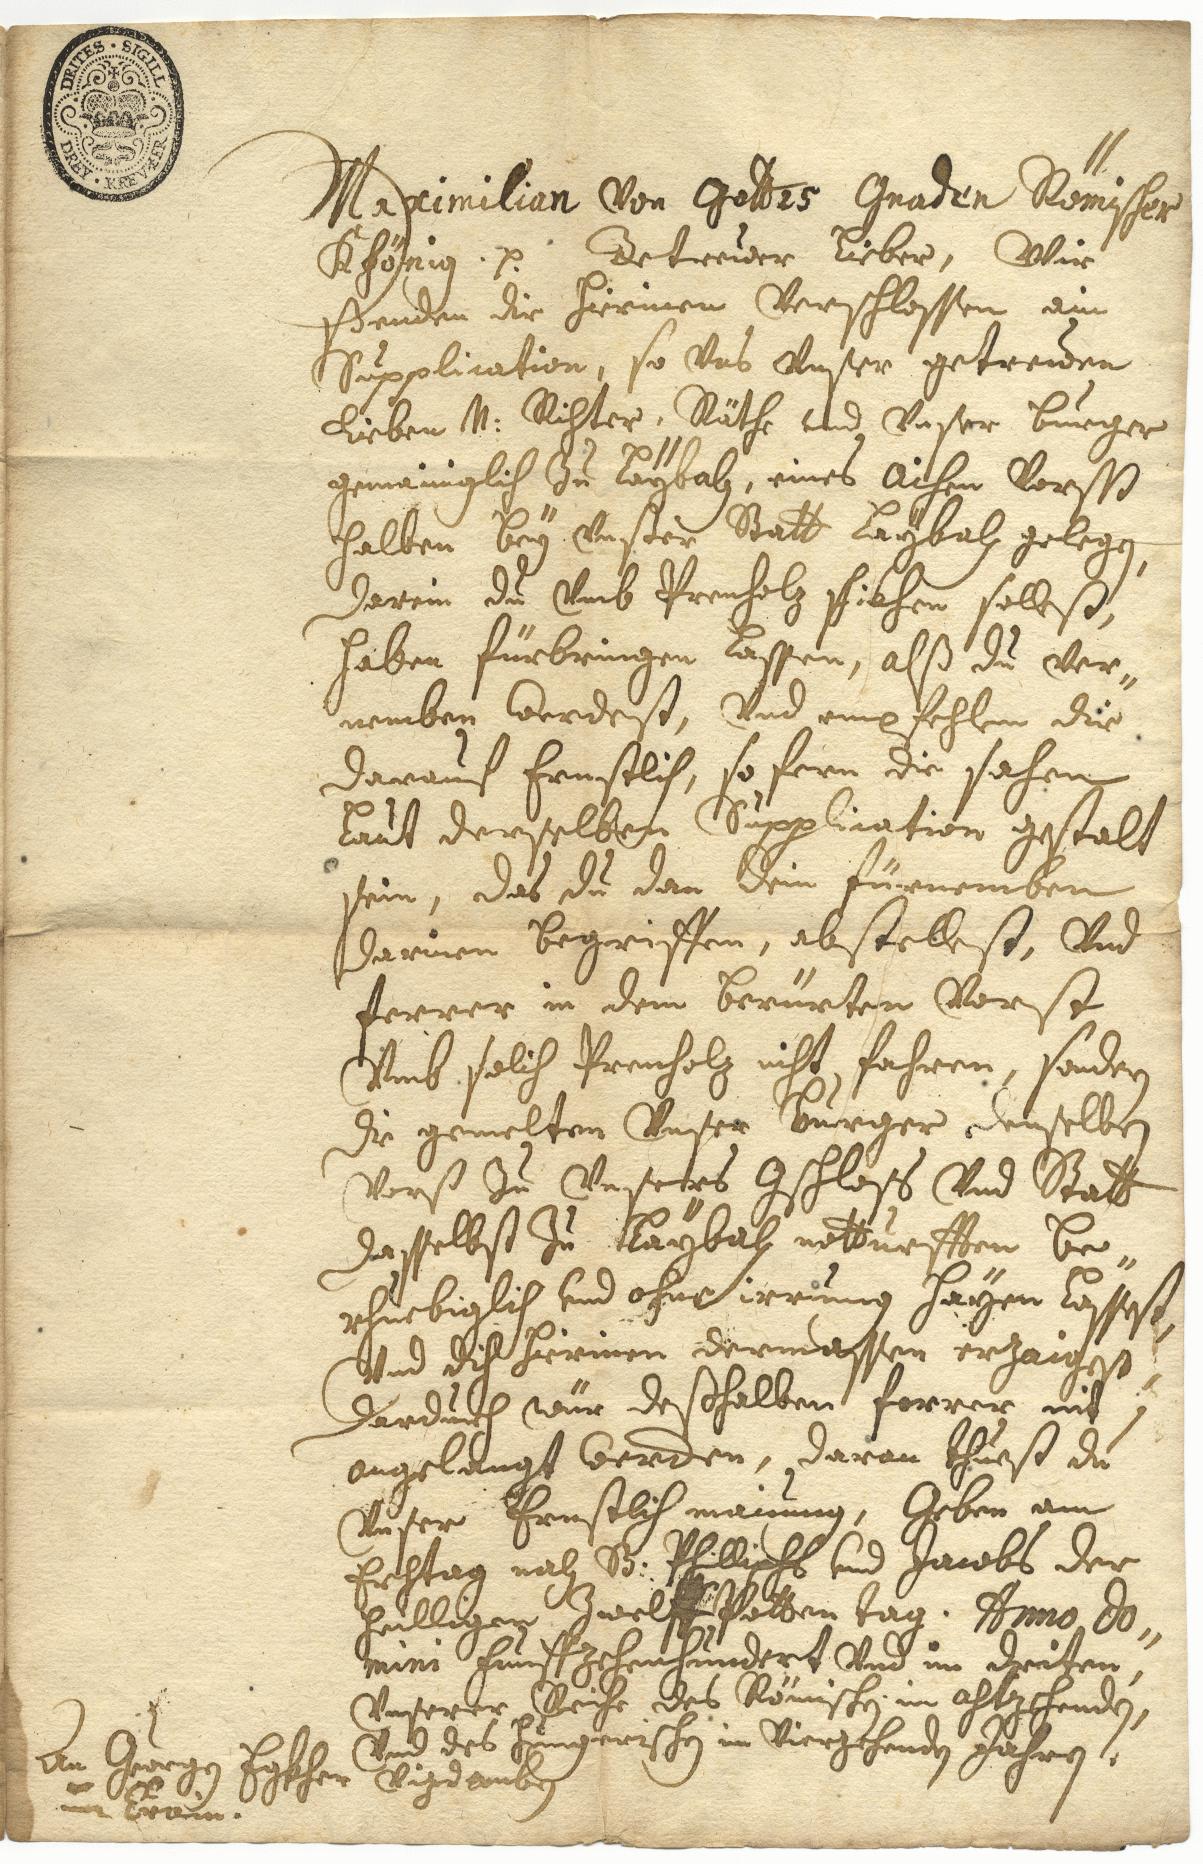 DRITES · SIGILL
DREY · KREVZER
Maximilian Von Gottes Gnaden Römischer
Khönig . p. Getrewer Lieber, Wür
sřenden dir hierinen Verschlossen ain
Supplication, so Uns Unser getrewen
Lieben N: Richter, Räthe und Unser burger
gemainiglich zu Laÿbach, eines Aichen Vorsst
halben beÿ Unster Statt Laÿbach gelegen,
darein du Umb Prenholz schikhen sollest,
haben fürbringen lassen, alß du ver„
nemben werdest, Und empfehlen dir
darauf Ernstlich, so fern die sachen
Laut derselben Supplication gestalt
sein, das du dan dein fürnemben
darinen begriffen, abstellest, Und
ferrer in dem berürten Vorst
Umb solich Prenholz nicht fahren, sondern
die gemelten Unser burger denselben
Vorst zu Unsers Gschloss Und Statt
dasselbst zu Laÿbach notturfften be„
rhuebiglich und ohne irrung haÿen Lassest,
Und dich hierinen dermassen erzaigest
dardurch wür deßhalben ferrer nit
angelangt werden, daran thuest du
Unser Ernstlich mainung, Geben am
Erchtag nach S: Phillipps und Jacobs der
heilligen Zwelff Potten tag. Anno Do„
mini Funffzehenhundert Und im driten,
Unserer Reiche des Römischen im achtzehenden,
Und des hungerischen im Vierzehenden Jahren.
An Georgen Egkher Vizdomben
in Crain.